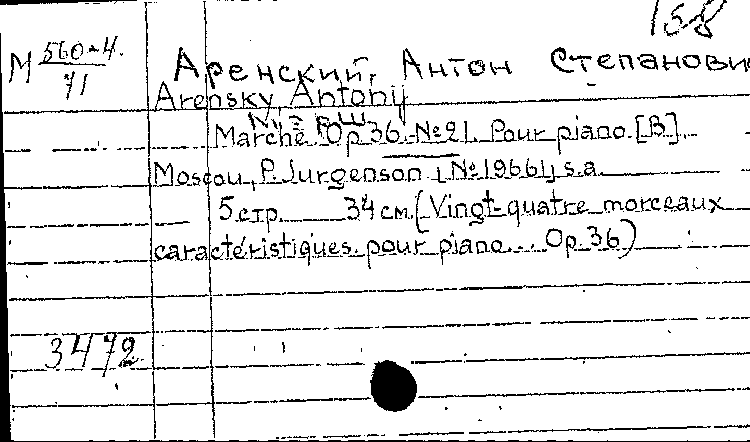 158
М 560-4.
71
Аренский, Антон Степанови
Arensky Antonij
Marche. Op 36. №21. Pour piano. [B].
Moscou, P. Jurgenson [№19661] s.a.
5 стр. 34 см. (Vingt-quatre morceaux
caractéristiques pour piano... Op. 36)
3472